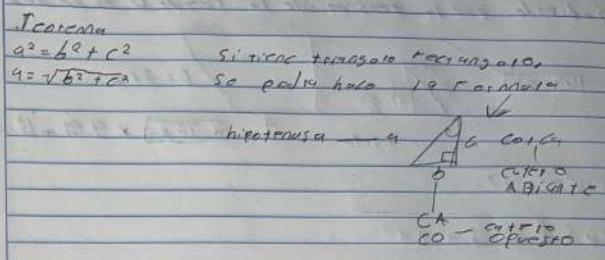 Teorema
a² = b² + c²
a = √b² + c²
si tiene triangulo rectangulo,
se podia hace la formula
hipotenusa — a
c co, ca
cateto
b
CA
CO — cateto
opuesto